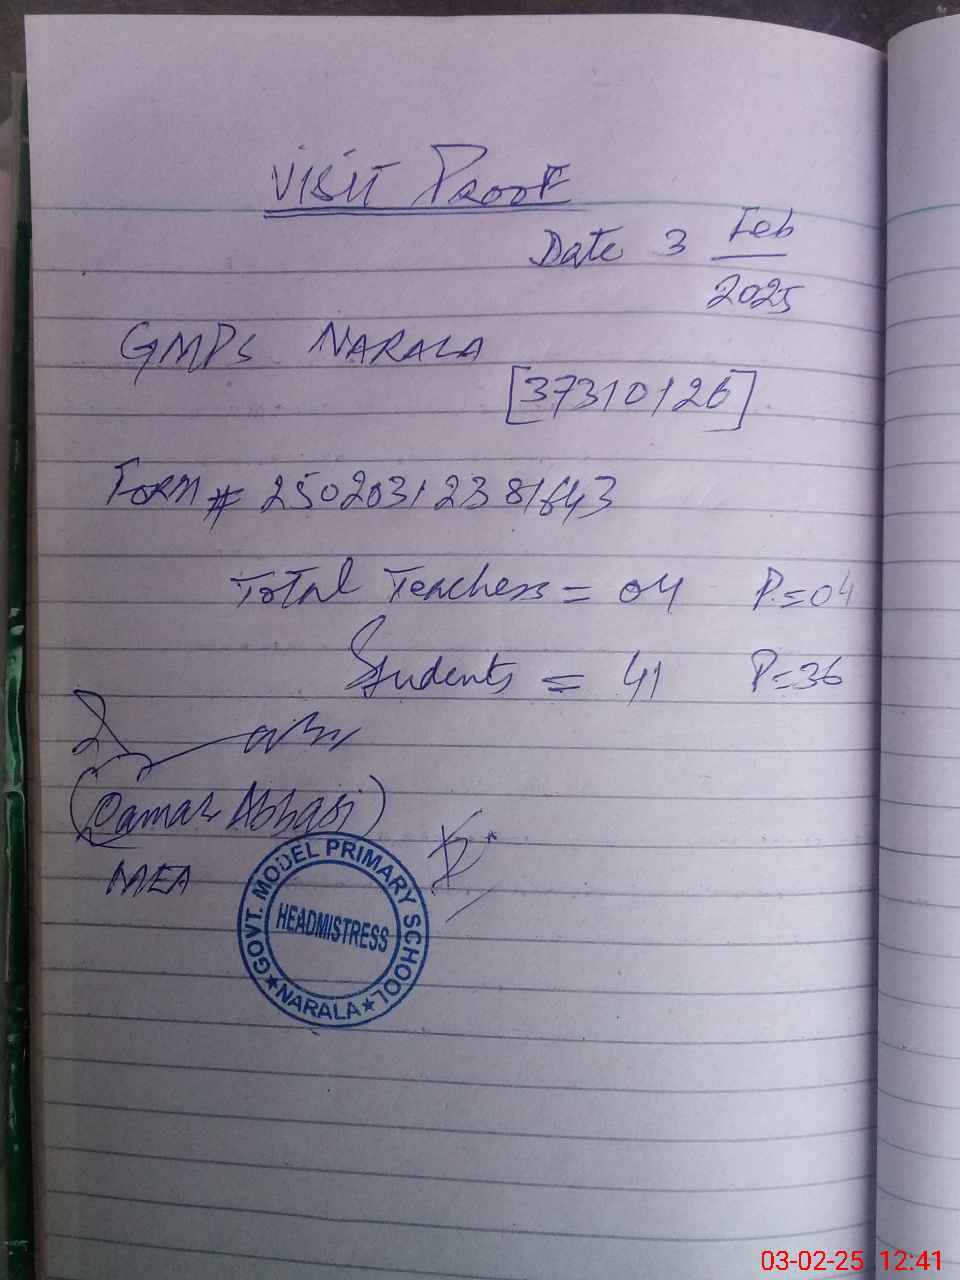 VISIT PROOF
Date 3 Feb
2025
GMPS NARALA
[37310126]
FORM # 25020312381643
Total Teachers = 04 P=04
Students = 41 P=36
(Qamar Abbasi)
MEA
GOVT. MODEL PRIMARY SCHOOL
HEADMISTRESS
★NARALA★
03-02-25 12:41